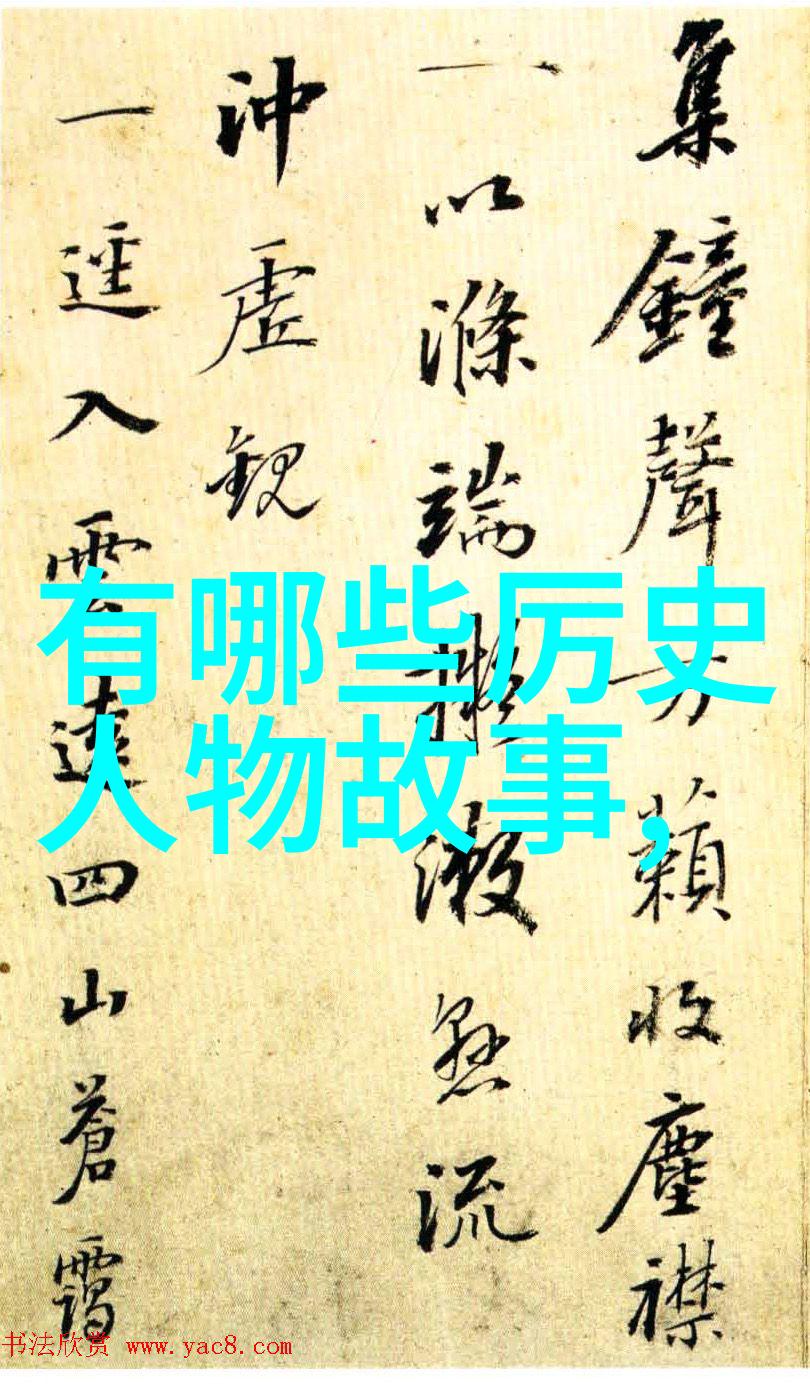 集鐘聲方蘋收塵襟
一以滌端擬激懸流
沖虛觀
一逕入雲遠四山蒼靄
有哪些历史
人物故事,
书法欣赏 www.yac8.com